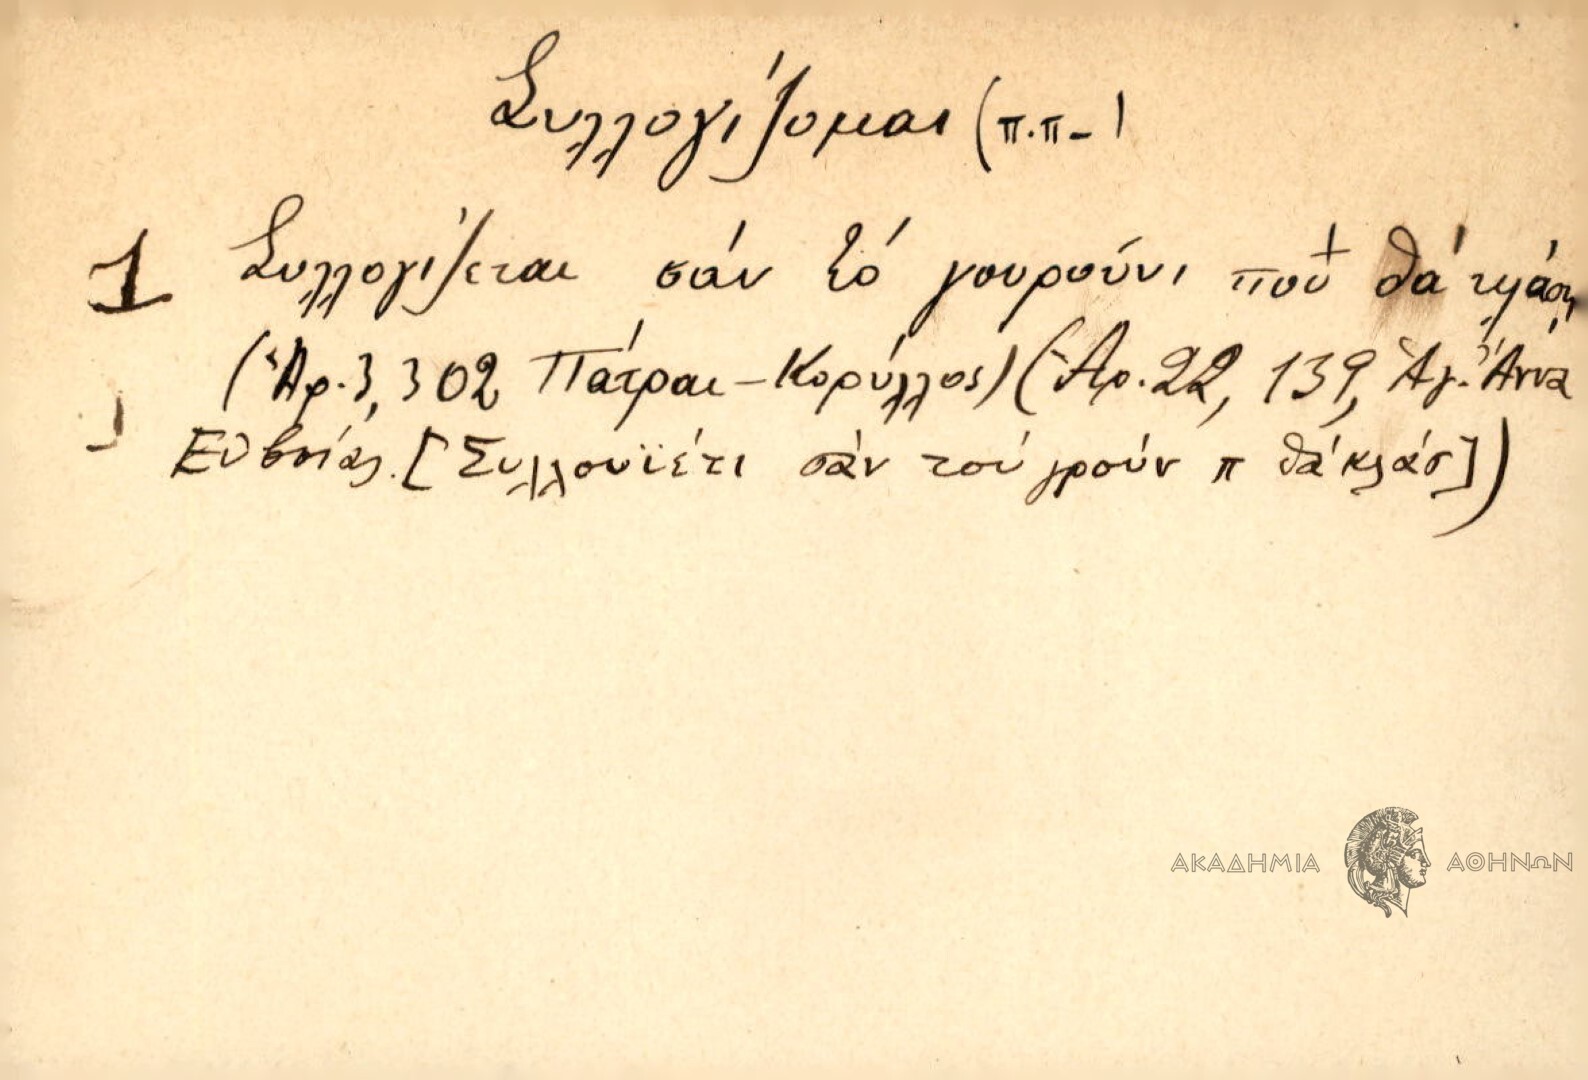 Συλλογίζομαι (π.π-)
1 Συλλογίζεται σάν τό γουρούνι πού θά κλάση
(Ἀρ. 3, 302 Πάτραι - Κορύλλος) (Ἀρ. 22, 139, Ἁγ. Ἄννα
Εὐβοίας. [Συλλουϊέτι σάν τού γρούν π θά κλάσ])
ΑΚΑΔΗΜΙΑ ΑΘΗΝΩΝ